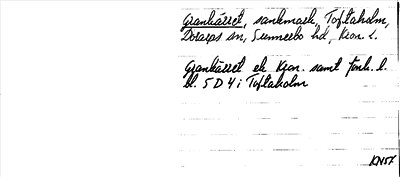 Grankärret, sankmark, Toftaholm,
Dörarps sn, Sunnerbo hd, Kron. l.
Grankärret ek Kron. samt jord. l.
bl. 5 D 4 i Toftaholm
KN57